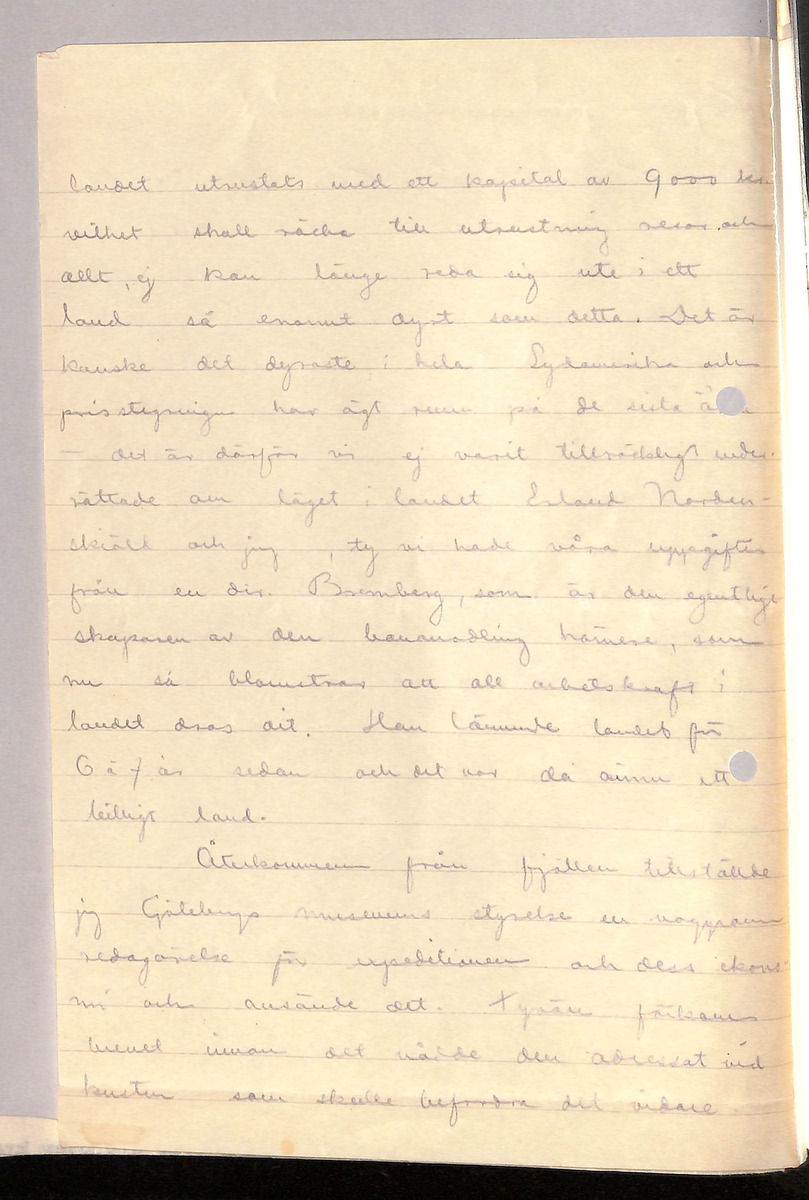 landet utrustats med ett kapital av 9000 kr.
vilket skall räcka till utrustning resor och
allt, ej kan länge reda sig ute i ett
land så enormt dyrt som detta. Det är
kanske det dyraste i hela Sydamerika och
prisstegringen har ägt rum på de sista
– det är därför vi ej varit tillräckligt under-
rättade om läget i landet Erland Norden-
skiöld och jag, ty vi hade våra uppgifter
från en dir. Bromberg, som är den egentlige
skaparen av den bananodling härnere, som
nu så blomstrar att all arbetskraft i
landet dras dit. Han lämnade landet för
6 à 7 år sedan och det var då ännu ett
billigt land.
Återkommen från fjällen tillställde
jag Göteborgs museums styrelse en noggrann
redogörelse för expeditionen och dess ekono-
mi och avsände det. Tyvärr förkom
brevet innan det nådde den adressat vid
kusten som skulle befordra det vidare.